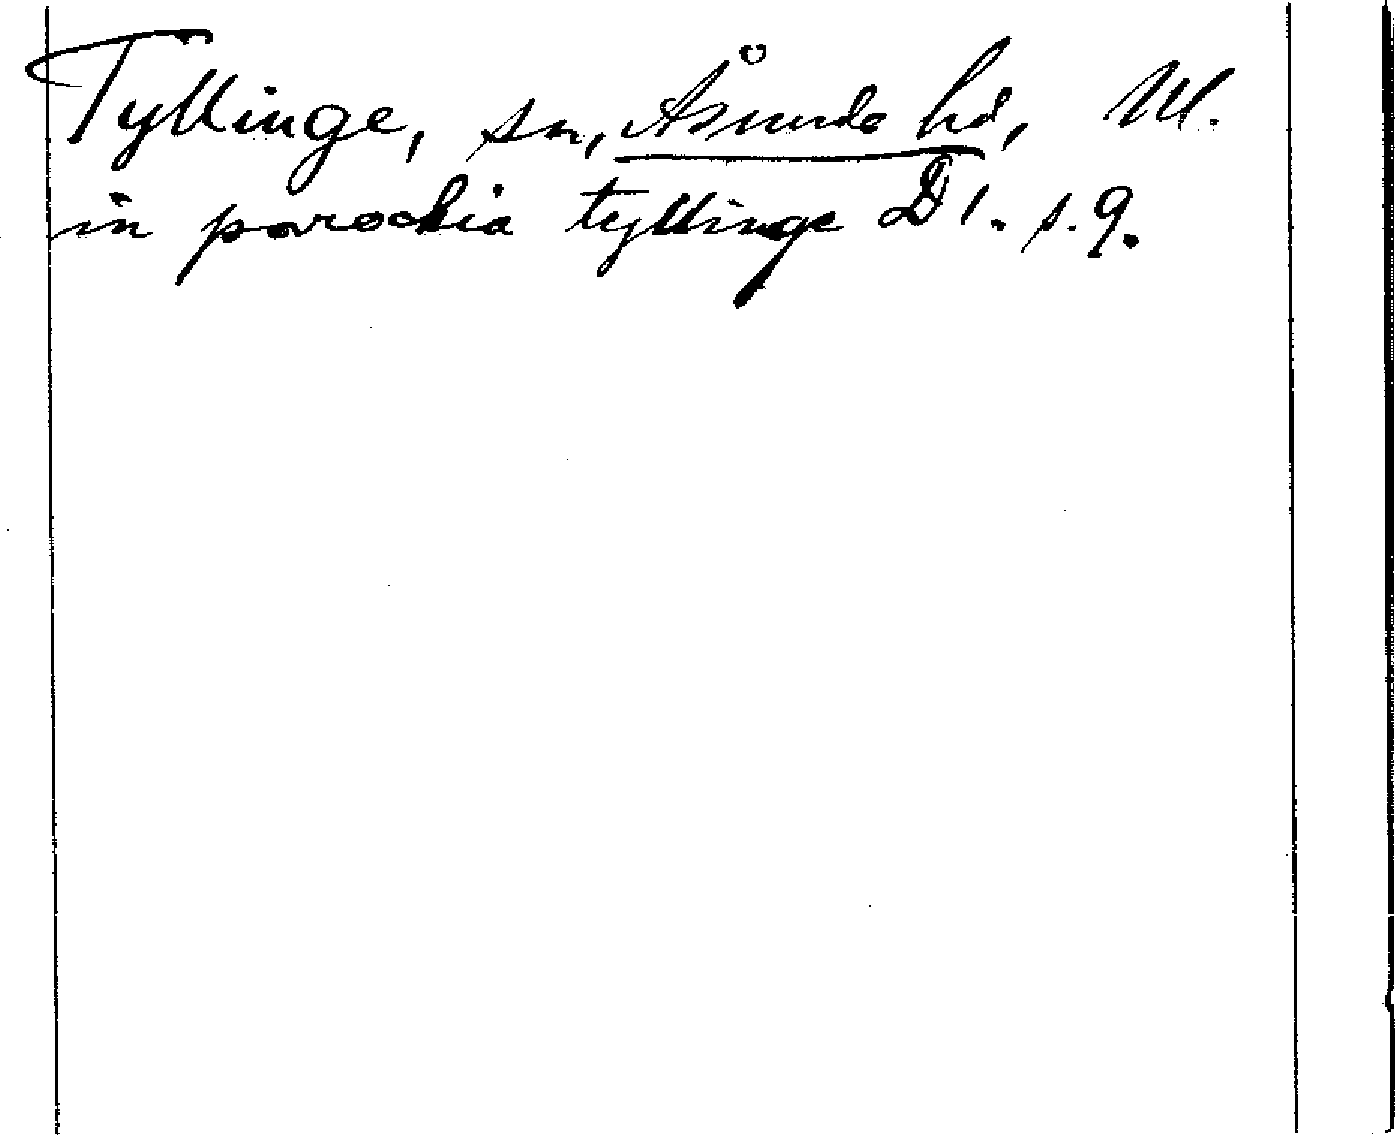 Tyllinge, sn, Åsunda hd, Ul.
in parochia tyllinge D1. s. 9.